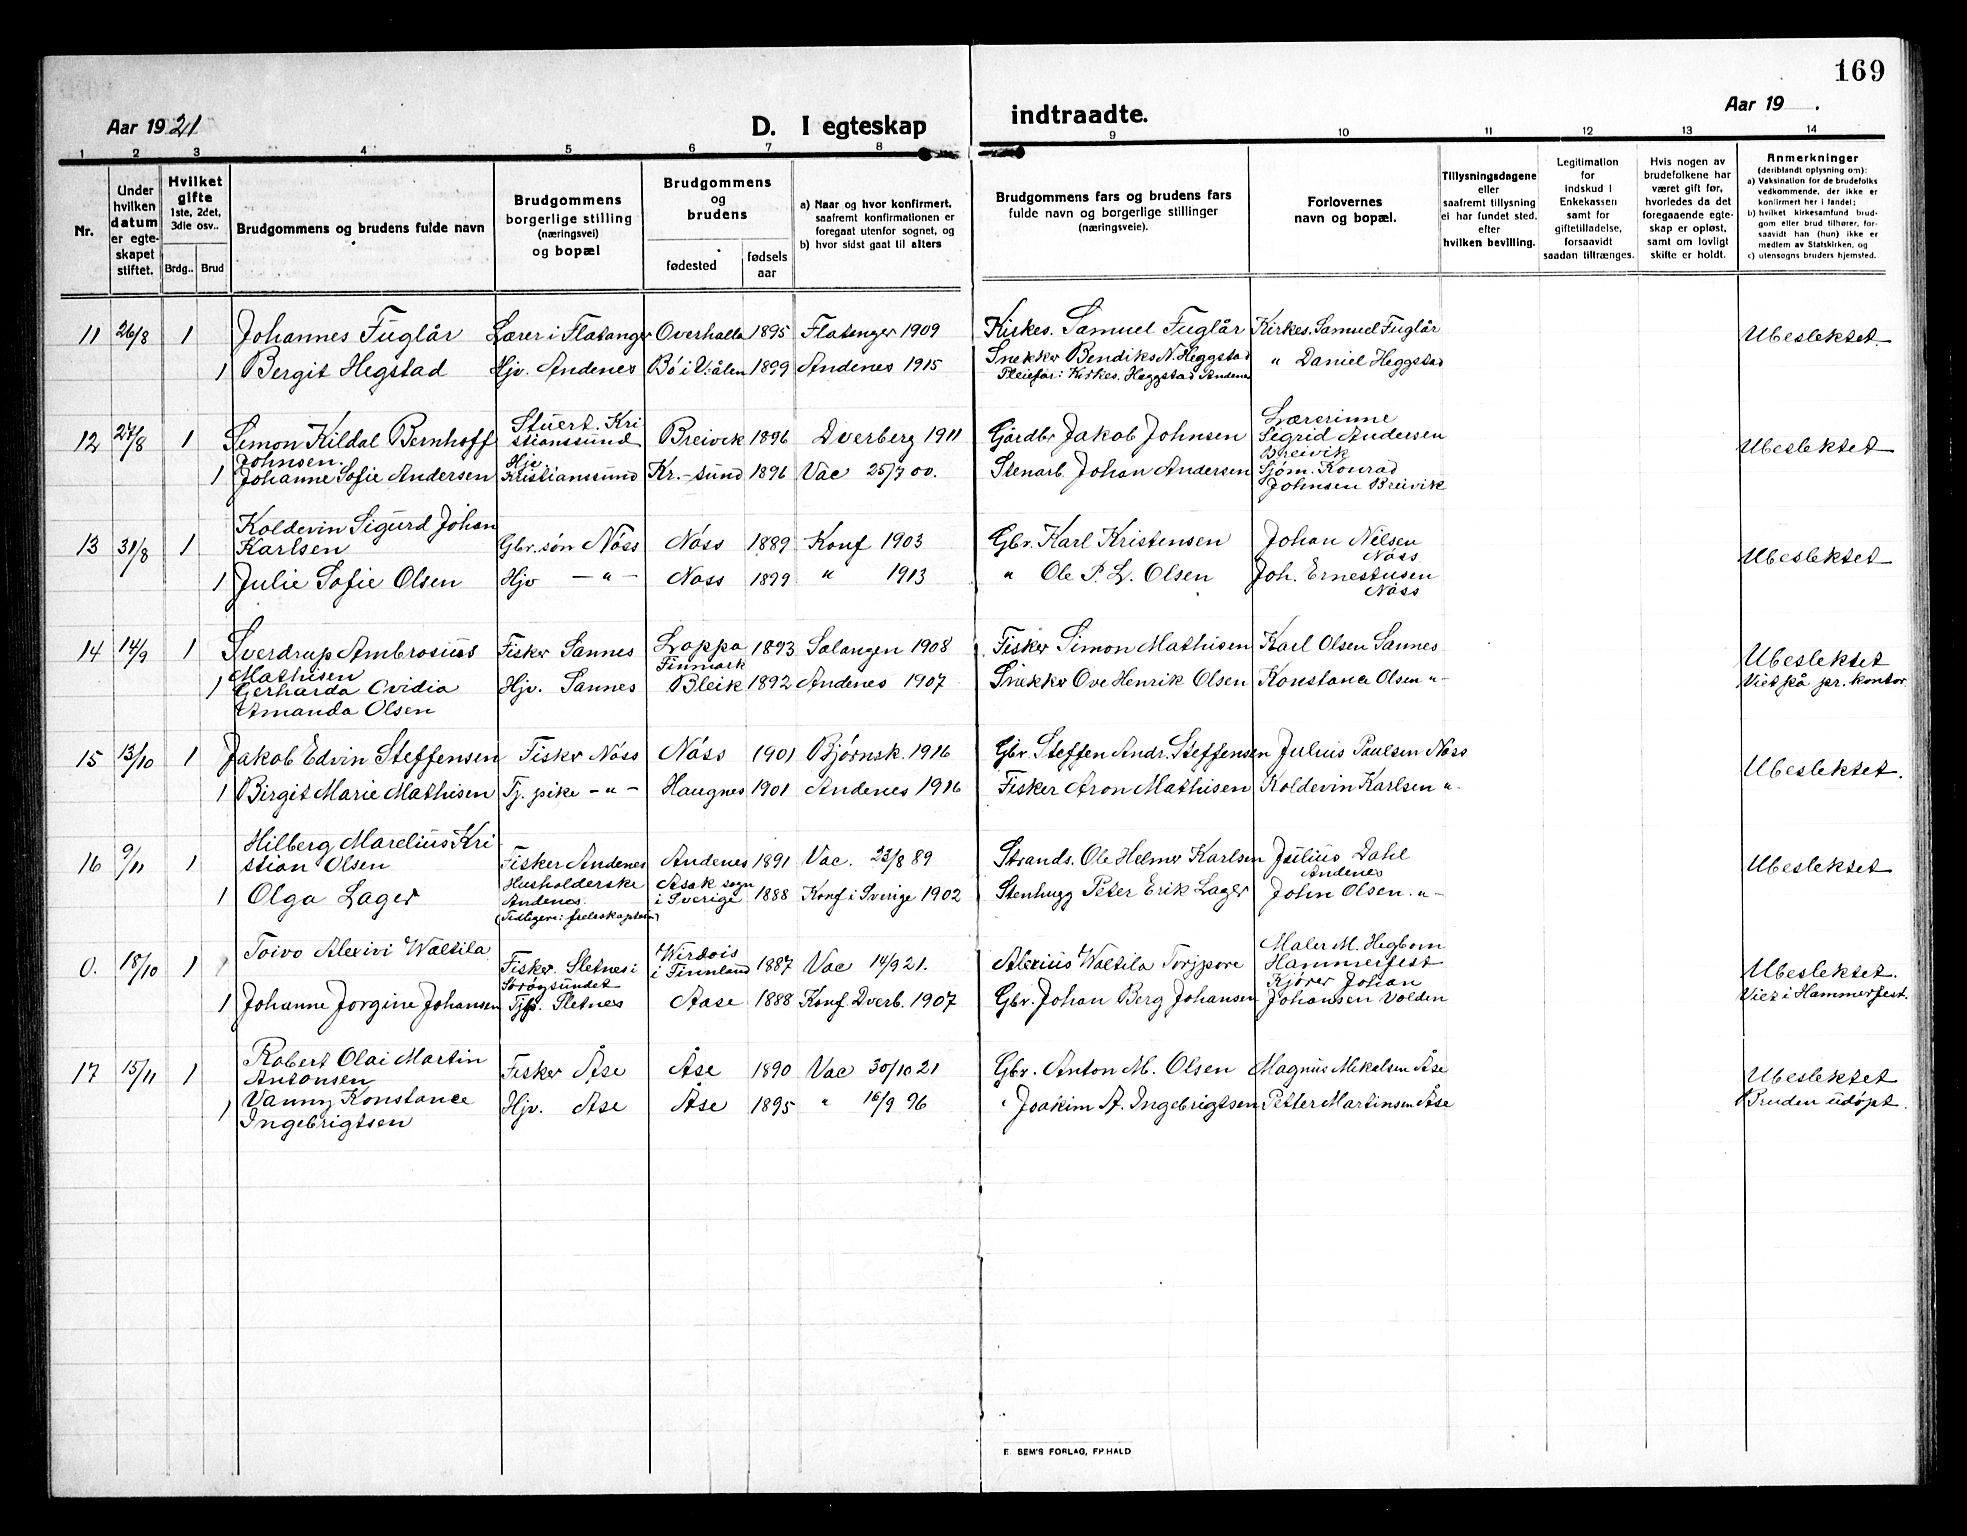 169
Aar 1921
D. I egteskap indtraadte.
Aar 19 .
1 2 3 4 5 6 7 8 9 10 11 12 13 14
Nr.
Under hvilken datum er egteskapet stiftet.
Hvilket gifte 1ste, 2det, 3die osv..
Brdg.. Brud
Brudgommens og brudens fulde navn
Brudgommens borgerlige stilling (næringsvei) og bopæl
Brudgommens og brudens
fødested
fødsels aar
a) Naar og hvor konfirmert, saafremt konfirmationen er foregaat utenfor sognet, og
b) hvor sidst gaat til alters
Brudgommens fars og brudens fars fulde navn og borgerlige stillinger (næringsveie).
Forlovernes navn og bopæl.
Tillysningsdagene eller saafremt tillysning ei har fundet sted. efter hvilken bevilling.
Legitimation for indskud i Enkekassen samt for giftetilladelse, forsaavidt saadan tiltrænges.
Hvis nogen av brudefolkene har været gift før, hvorledes da det foregaaende egteskap er opløst, samt om lovligt skifte er holdt.
Anmerkninger (deriblandt oplysning om):
a) Vaksination for de brudefolks vedkommende, der ikke er konfirmert her i landet;
b) hvilket kirkesamfund brudgom eller brud tilhører, forsaavidt han (hun) ikke er medlem av Statskirken, og
c) utensogns bruders hjemsted.
11 26/8 1 Johannes Fuglår Lærer i Flatanger Overhalla 1895 Flatanger 1909 Kirkes. Samuel Fuglår Kirkes. Samuel Fuglår Ubeslektet
1 Bergit Hegstad Hjv. Andenes Bö i V.ålen 1899 Andenes 1915 Snekker Bendiks N. Heggstad " Daniel Heggstad
Pleiefar: Kirkes. Heggstad Andenes
12 27/8 1 Simon Kildal Bernhoff Johnsen Stuert. Kristianssund Breivik 1896 Dverberg 1911 Gårdbr Jakob Johnsen Lærerinne Sigrid Andersen Breivik Ubeslektet
1 Johanne Sofie Andersen Hjv Kristianssund Kr.-sund 1896 Vac 25/7 00. Stenarb. Johan Andersen Sjöm. Konrad Johnsen Breivik
13 31/8 1 Koldevin Sigurd Johan Karlsen Gbr. sön Nöss Nöss 1889 Konf 1903 Gbr. Karl Kristensen Johan Nilsen Nöss Ubeslektet
1 Julie Sofie Olsen Hjv - " - Nöss 1899 " 1913 " Ole P. L. Olsen Joh. Ernestusen Nöss
14 14/9 1 Sverdrup Ambrosius Mathisen Fisker Sannes Loppa Finmark 1893 Salangen 1908 Fisker Simon Mathisen Karl Olsen Sannes Ubeslektet
1 Gerharda Ovidia Amanda Olsen Hjv. Sannes Bleik 1892 Andenes 1907 Snekker Ove Henrik Olsen Konstance Olsen "- Viet på pr. kontor
15 13/10 1 Jakob Edvin Steffensen Fisker Nöss Nöss 1901 Bjørnsk. 1916 Gbr Steffen Andr. Steffensen Julius Paulsen Nöss Ubeslektet.
1 Birgit Marie Mathisen Tj. pike - " - Haugnes 1901 Andenes 1916 Fisker Aron Mathisen Koldevin Karlsen "-
16 9/11 1 Hilberg Marelius Kristian Olsen Fisker Andenes Andenes 1891 Vac. 23/8 89 Strands. Ole Helmer Karlsen Julius Dahl Andenes Ubeslektet
1 Olga Lager Husholderske Andenes. Asak sogn i Sverige 1888 Konf i Sverige 1902 Stenhugg Peter Erik Lager John Olsen. "-
0. 18/10 1 Toivo Alexivi Waltila Fisker. Sletnes i Sörøysundet Wirdois i Finnland 1887 Vac 14/9 21. Alexius Waltila Maler M. Hegbom Hammerfest Ubeslektet.
1 Johanne Jorgine Johansen Tjp. Sletnes Aase 1888 Konf Dverb. 1907 Gbr. Johan Berg Johansen Kjörer Johan Johansen Volden Viet i Hammerfest.
17 15/11 1 Robert Olai Martin Antonsen Fisker Åse Åse 1890 Vac 30/10 21 Gbr. Anton M. Olsen Magnus Mikelsen Åse Ubeslektet
1 Vanny Konstance Ingebrigtsen Hjv. Åse Åse 1895 " 16/9 96 " Joakim A. Ingebrigtsen Petter Martinsen Åse Bruden udöpt.
E. SEM'S FORLAG, FR.HALD